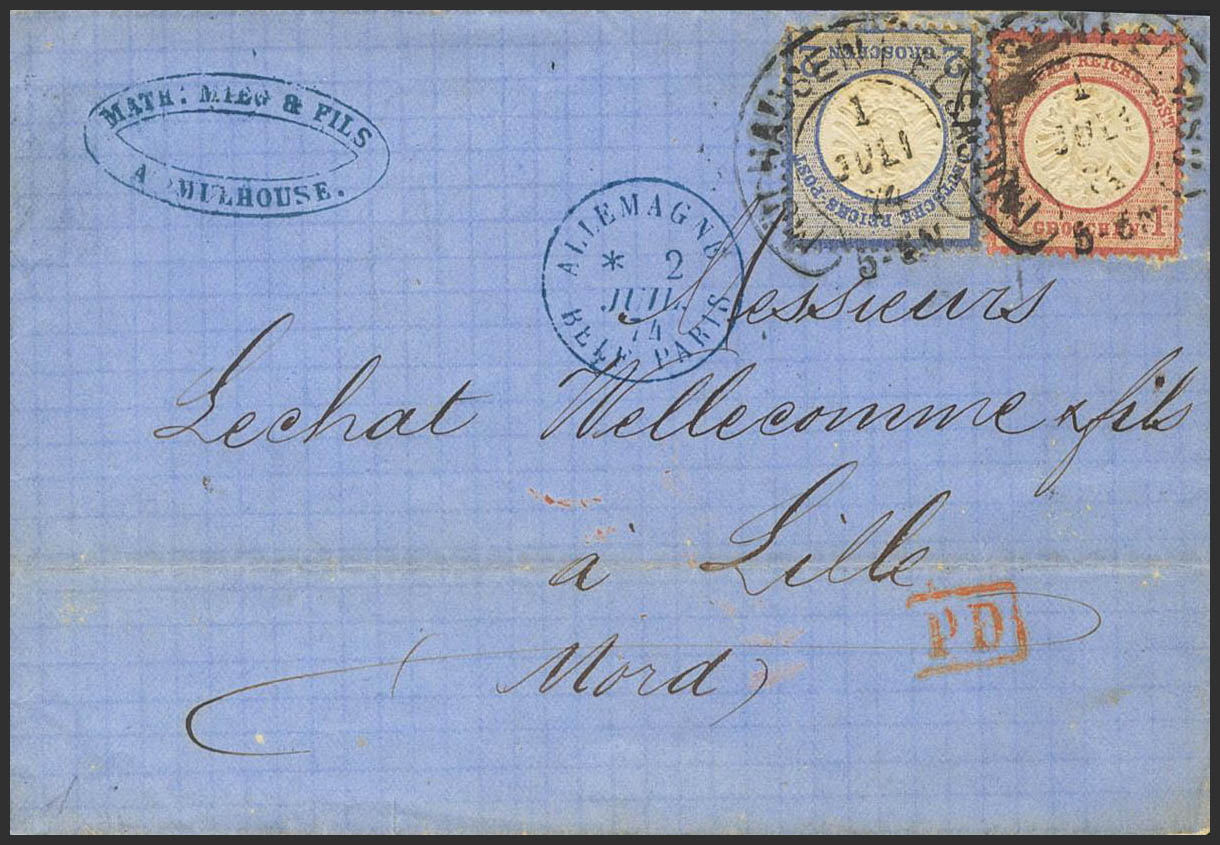 MATH: MIEG & FILS
A MULHOUSE.
2 GROSCHEN 2
DEUTSCHE REICHS-POST
1 GROSCHEN 1
REICHS-POST
MÜLHAUSEN I. ELSASS
1
JULI
74
5-6N
1
JULI
5-6N
ALLEMAGNE
* 2
JUIL.
74
BELF. PARIS
Messieurs
Lechat Wellecomme & fils
à Lille
(Nord)
PD